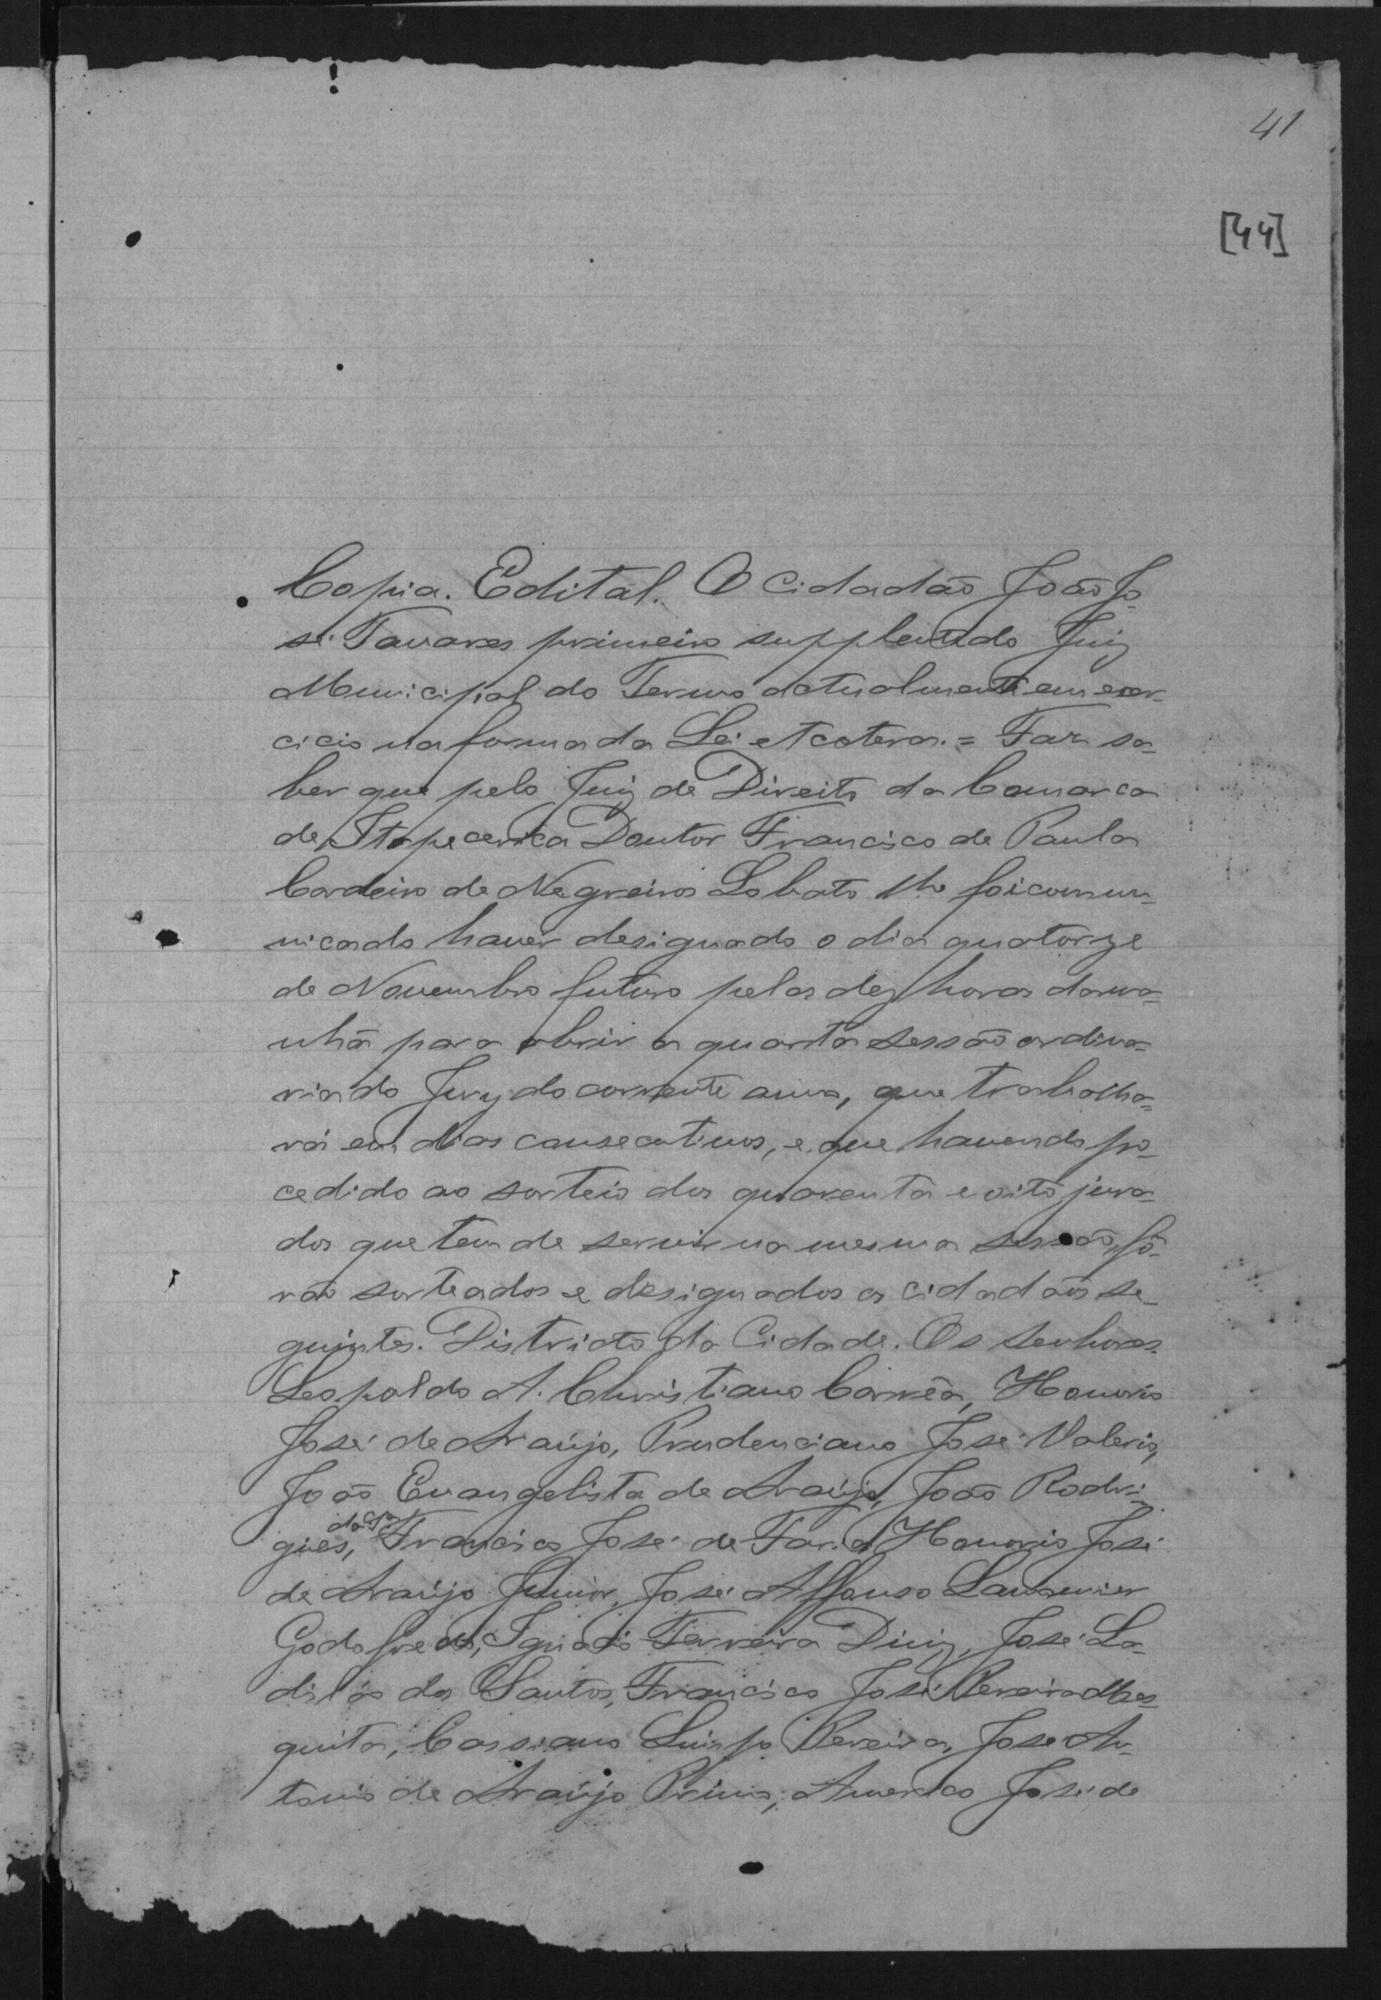 41
[44]
Copia. Edital. O Cidadão João Jo-
sé Tavares primeiro supplente do Juiz
Municipal do Termo actualmente em exer-
cicio na forma da Lei etcetera. = Faz sa-
ber que pelo Juiz de Direito da Comarca
de Itapecerica Doutor Francisco de Paula
Cordeiro de Negreiros Lobato lhe foi commu-
nicado haver designado o dia quatorze
de Novembro futuro pelas dez horas da ma-
nhã para abrir a quarta sessão ordina-
ria do Jury do corrente anno, que trabalha-
rá em dias consecutivos, e que havendo pro-
cedido ao sorteio dos quarenta e oito jura-
dos que tem de servir na mesma sessão, fô-
rão sorteados e designados os cidadãos se-
guintes. Districto da Cidade. Os Senhores
Leopoldo A. Christiano Corrêa, Honorio
José de Araújo, Prudenciano José Valerio,
João Evangelista de Araújo, João Rodri-
gues, Francisco José de Faria Honorio José
de Araújo Junior, José Affonso
Godofredo, Ignacio Ferreira Diniz, José La-
disláo dos Santos, Francisco José Pereira Mes-
quita, Cassiano Pereira, José An-
tonio de Araújo Primo, Americo José de